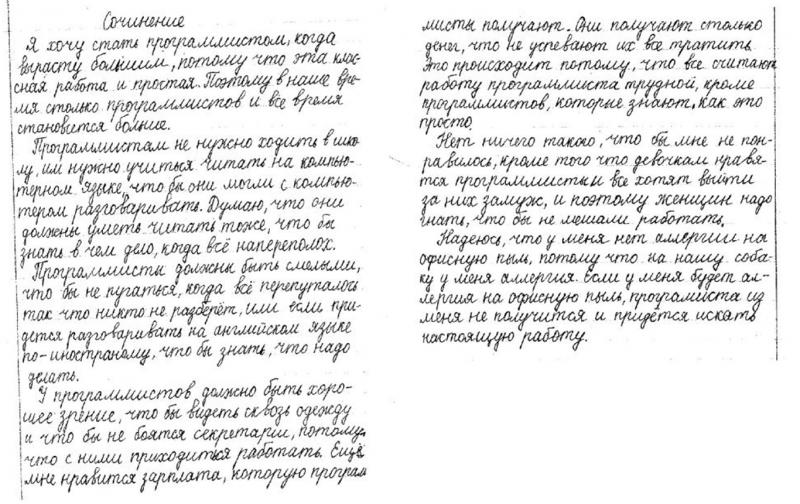 Сочинение
Я хочу стать программистом, когда
вырасту большим, потому что эта клас-
сная работа и простая. Поэтому в наше вре-
мя столько программистов и все время
становится больше.
Программистам не нужно ходить в шко-
лу, им нужно учиться читать на компью-
терном языке, что бы они могли с компью-
тером разговаривать. Думаю, что они
должны уметь читать тоже, что бы
знать в чем дело, когда всё напереполох.
Программисты должны быть смелыми,
что бы не пугаться, когда всё перепуталось
так что никто не разберёт, или если при-
дется разговаривать на английском языке
по-иностраному, что бы знать, что надо
делать.
У программистов должно быть хоро-
шее зрение, что бы видеть сквозь одежду
и что бы не боятся секретарш, потому,
что с ними приходиться работать. Ещё
мне нравится зарплата, которую програм
мисты получают. Они получают столько
денег, что не успевают их все тратить.
Это происходит потому, что все считают
работу программиста трудной, кроме
программистов, которые знают, как это
просто.
Нет ничего такого, что бы мне не пон-
равилось, кроме того что девочкам нравя-
тся программисты и все хотят выйти
за них замуж, и поэтому женщин надо
гнать, что бы не мешали работать.
Надеюсь, что у меня нет аллергии на
офисную пыль, потому что на нашу соба-
ку у меня аллергия. Если у меня будет ал-
лергия на офисную пыль, програмиста из
меня не получится и придётся искать
настоящую работу.